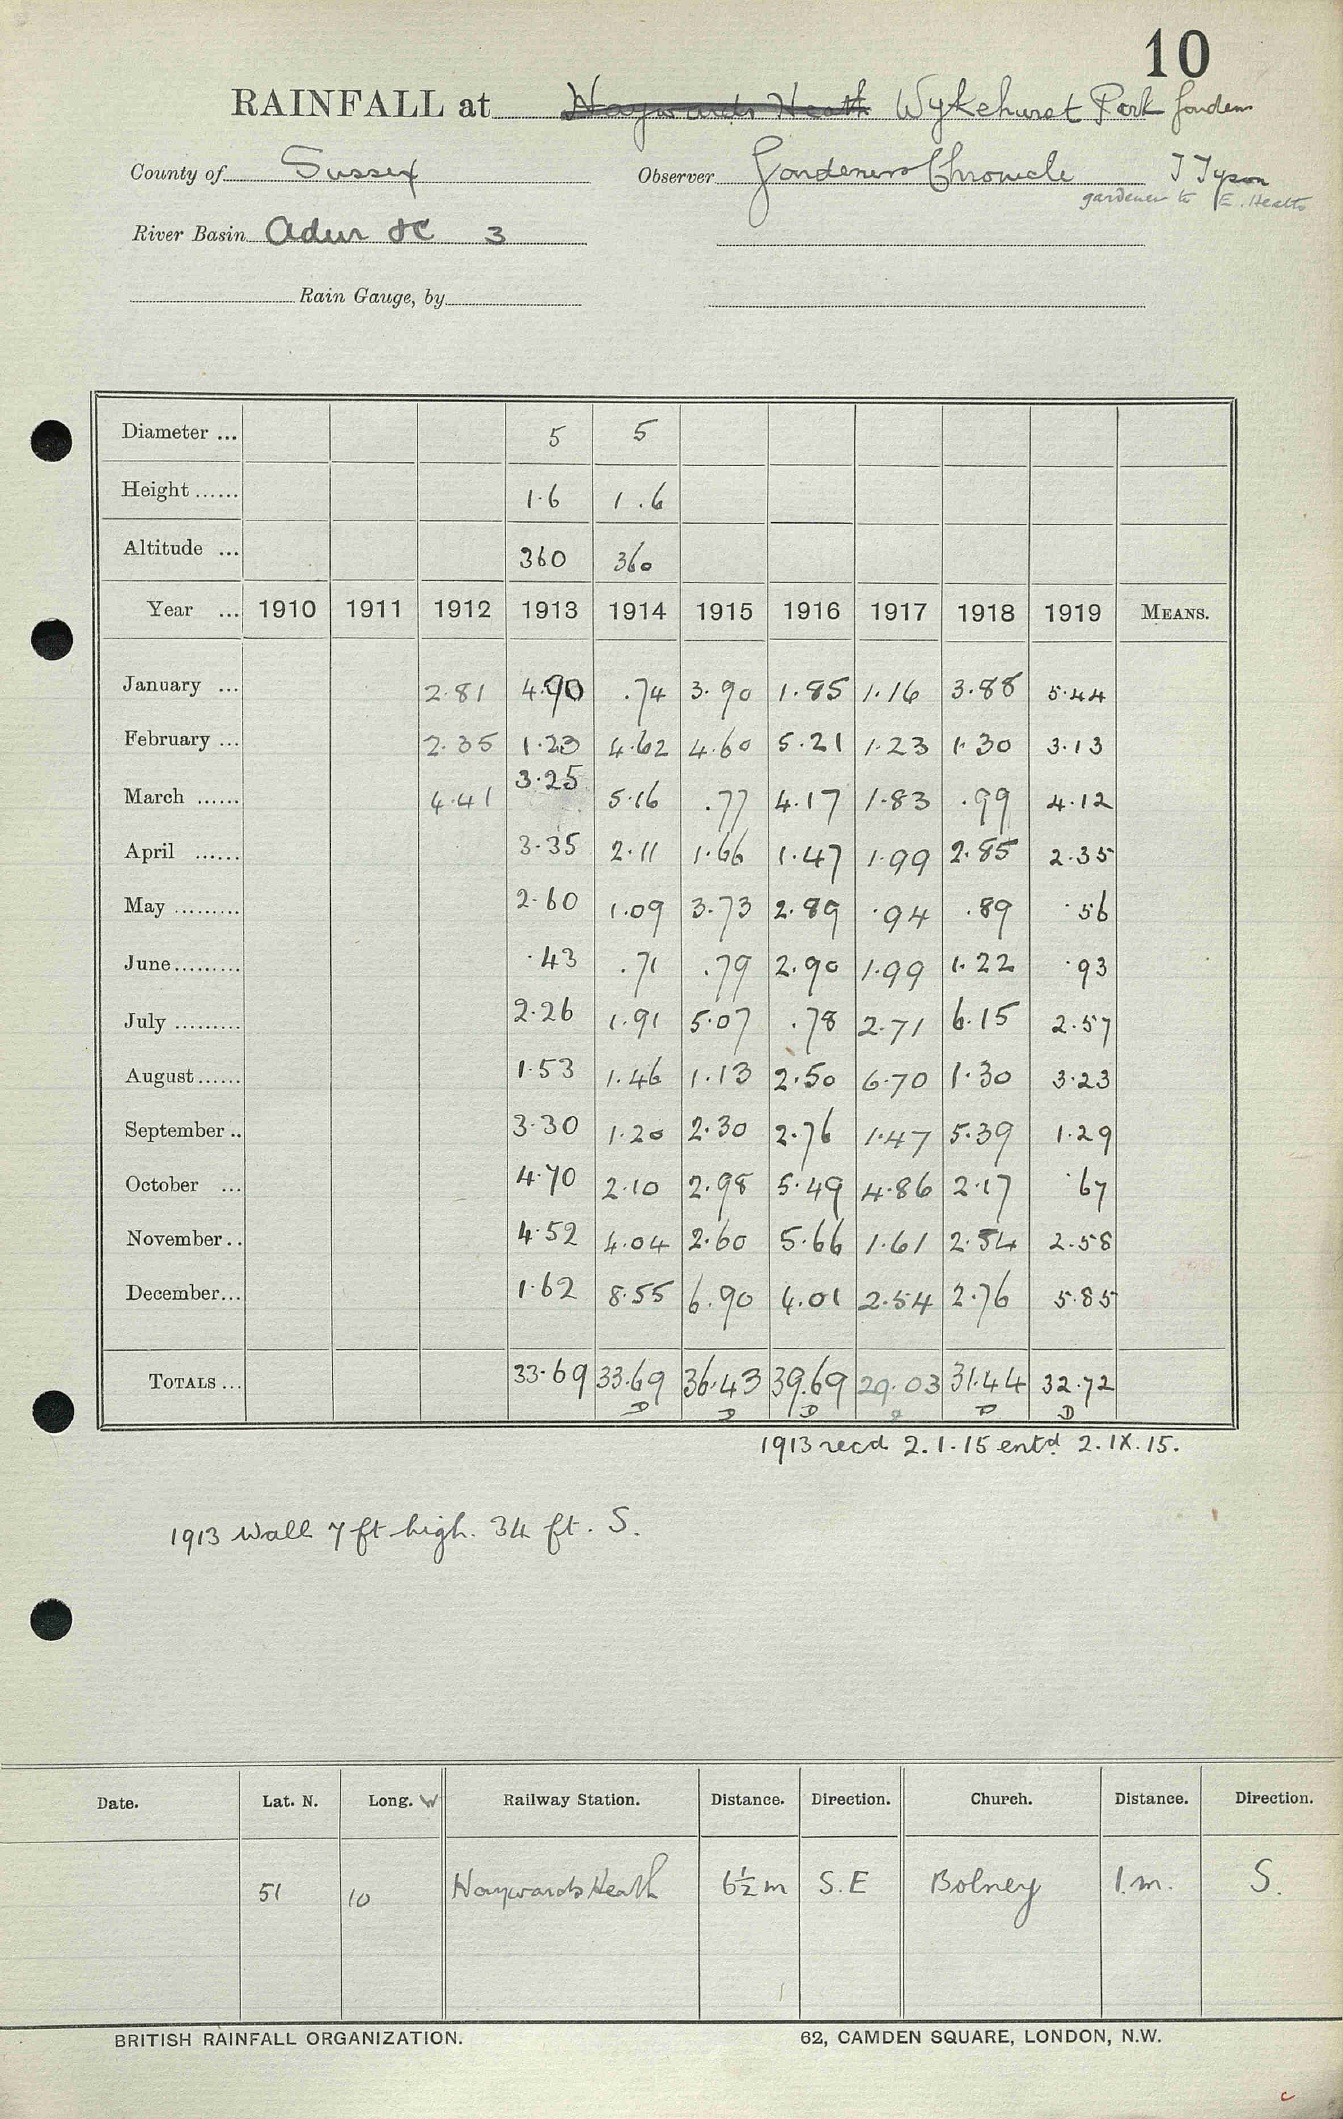 10
RAINFALL at Haywards Heath Wykehurst Park Gardens
County of Sussex Observer Gardeners Chronicle J Tyson
gardener to E. Healts
River Basin Adur &c 3
Rain Gauge, by
Diameter ... 5 5
Height ...... 1.6 1.6
Altitude ... 360 360
Year ... 1910 1911 1912 1913 1914 1915 1916 1917 1918 1919 MEANS.
January ... 2.81 4.90 .74 3.90 1.85 1.16 3.88 5.44
February ... 2.35 1.23 4.62 4.60 5.21 1.23 1.30 3.13
March ...... 4.41 3.25 5.16 .77 4.17 1.83 .99 4.12
April ...... 3.35 2.11 1.66 1.47 1.99 2.85 2.35
May ......... 2.60 1.09 3.73 2.89 .94 .89 .56
June ......... .43 .71 .79 2.90 1.99 1.22 .93
July ......... 2.26 1.91 5.07 .78 2.71 6.15 2.57
August ...... 1.53 1.46 1.13 2.50 6.70 1.30 3.23
September .. 3.30 1.20 2.30 2.76 1.47 5.39 1.29
October ... 4.70 2.10 2.98 5.49 4.86 2.17 .67
November .. 4.52 4.04 2.60 5.66 1.61 2.54 2.58
December ... 1.62 8.55 6.90 4.01 2.54 2.76 5.85
TOTALS ... 33.69 33.69 36.43 39.69 29.03 31.44 32.72
D D D D D
1913 recd 2.1.15 entd 2.IX.15.
1913 Wall 7 ft high. 34 ft. S.
Date. Lat. N. Long. W Railway Station. Distance. Direction. Church. Distance. Direction.
51 10 Haywards Heath 6½ m S.E Bolney 1.m. S.
BRITISH RAINFALL ORGANIZATION. 62, CAMDEN SQUARE, LONDON, N.W.
c